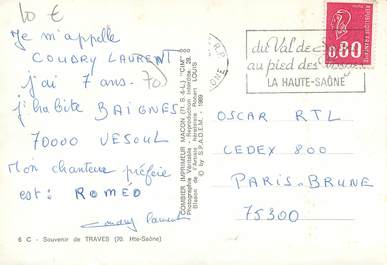 10 €
Je m'appelle
COUDRY LAURENT
j'ai 7 ans. 70
j'habite BAIGNES
70000 VESOUL
Mon chanteur préfére
est: ROMÉO
Coudry Laurent
6 C - Souvenir de TRAVES (70. Hte-Saône)
COMBIER IMPRIMEUR MACON (71. S.-&-L.) "CIM"
Photographie Véritable - Reproduction Interdite - 28.
Blason de l'Armorial Héraldiste Robert LOUIS
© by S.P.A.D.E.M. - 1969
R.P.
SAONE
du Val de
au pied des
LA HAUTE-SAÔNE
0,80
OSCAR RTL
CEDEX 800
PARIS-BRUNE
75300